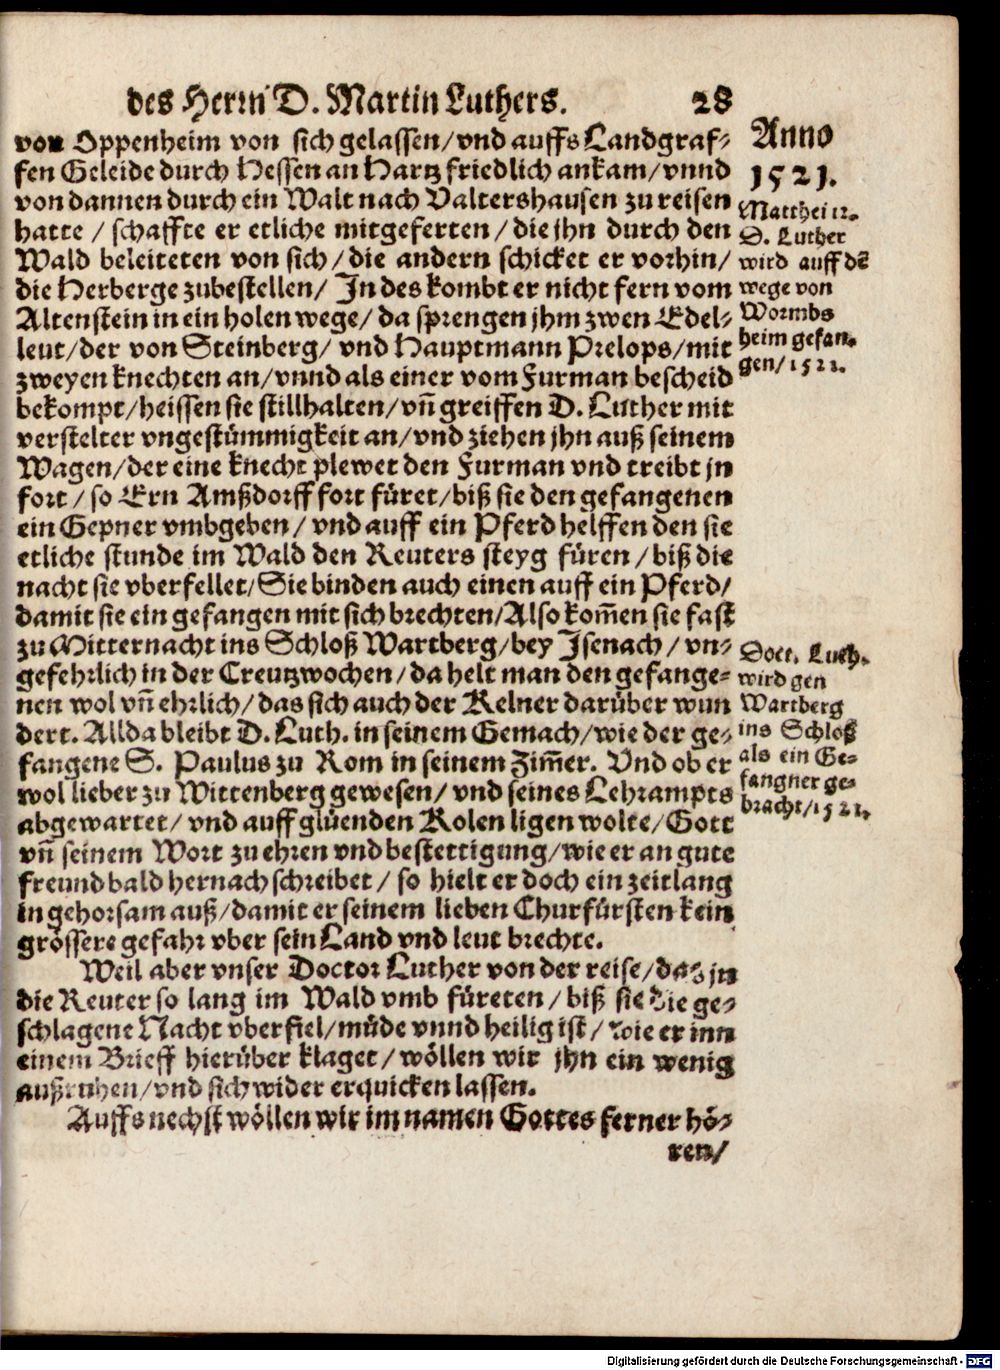 des Herrn D. Martin Luthers. 28
von Oppenheim von sich gelassen/vnd auffs Landgraf-
fen Geleide durch Hessen an Hartz friedlich ankam/vnnd
von dannen durch ein Walt nach Valtershausen zu reisen
hatte / schaffte er etliche mitgeferten / die jhn durch den
Wald beleiteten von sich / die andern schicket er vorhin/
die Herberge zubestellen/ In des kombt er nicht fern vom
Altenstein in ein holen wege/ da sprengen jhm zwen Edel-
leut/der von Steinberg/ vnd Hauptmann Prelops/mit
zweyen knechten an/vnnd als einer vom Furman bescheid
bekompt/heissen sie stillhalten/vñ greiffen D. Luther mit
verstelter vngestümmigkeit an/vnd ziehen jhn auß seinem
Wagen/der eine knecht plewet den Furman vnd treibt jn
fort / so Ern Amßdorff fort füret/biß sie den gefangenen
ein Gepner vmbgeben / vnd auff ein Pferd helffen den sie
etliche stunde im Wald den Reuters steyg füren / biß die
nacht sie vberfellet/Sie binden auch einen auff ein Pferd/
damit sie ein gefangen mit sich brechten/Also kom̃en sie fast
zu Mitternacht ins Schloß Wartberg/bey Isenach / vn-
gefehrlich in der Creutzwochen/da helt man den gefange-
nen wol vñ ehrlich/das sich auch der Kelner darüber wun
dert. Allda bleibt D. Luth. in seinem Gemach/wie der ge-
fangene S. Paulus zu Rom in seinem Zim̃er. Vnd ob er
wol lieber zu Wittenberg gewesen/ vnd seines Lehrampts
abgewartet/ vnd auff glüenden Kolen ligen wolte/Gott
vñ seinem Wort zu ehren vnd bestettigung/wie er an gute
freund bald hernach schreibet / so hielt er doch ein zeitlang
in gehorsam auß/damit er seinem lieben Churfürsten kein
grössere gefahr vber sein Land vnd leut brechte.
Weil aber vnser Doctor Luther von der reise/daß jn
die Reuter so lang im Wald vmb füreten / biß sie die ge-
schlagene Nacht vberfiel/müde vnnd heilig ist / wie er inn
einem Brieff hierüber klaget/ wöllen wir jhn ein wenig
außruhen/vnd sich wider erquicken lassen.
Auffs nechst wöllen wir im namen Gottes ferner hö-
ren/
Anno
1521.
Matthei 12.
D. Luther
wird auff dē
wege von
Wormbs
heim gefan-
gen/1521.
Doct. Luth.
wird gen
Wartberg
ins Schloß
als ein Ge-
fangner ge-
bracht/1521.
Digitalisierung gefördert durch die Deutsche Forschungsgemeinschaft - DFG